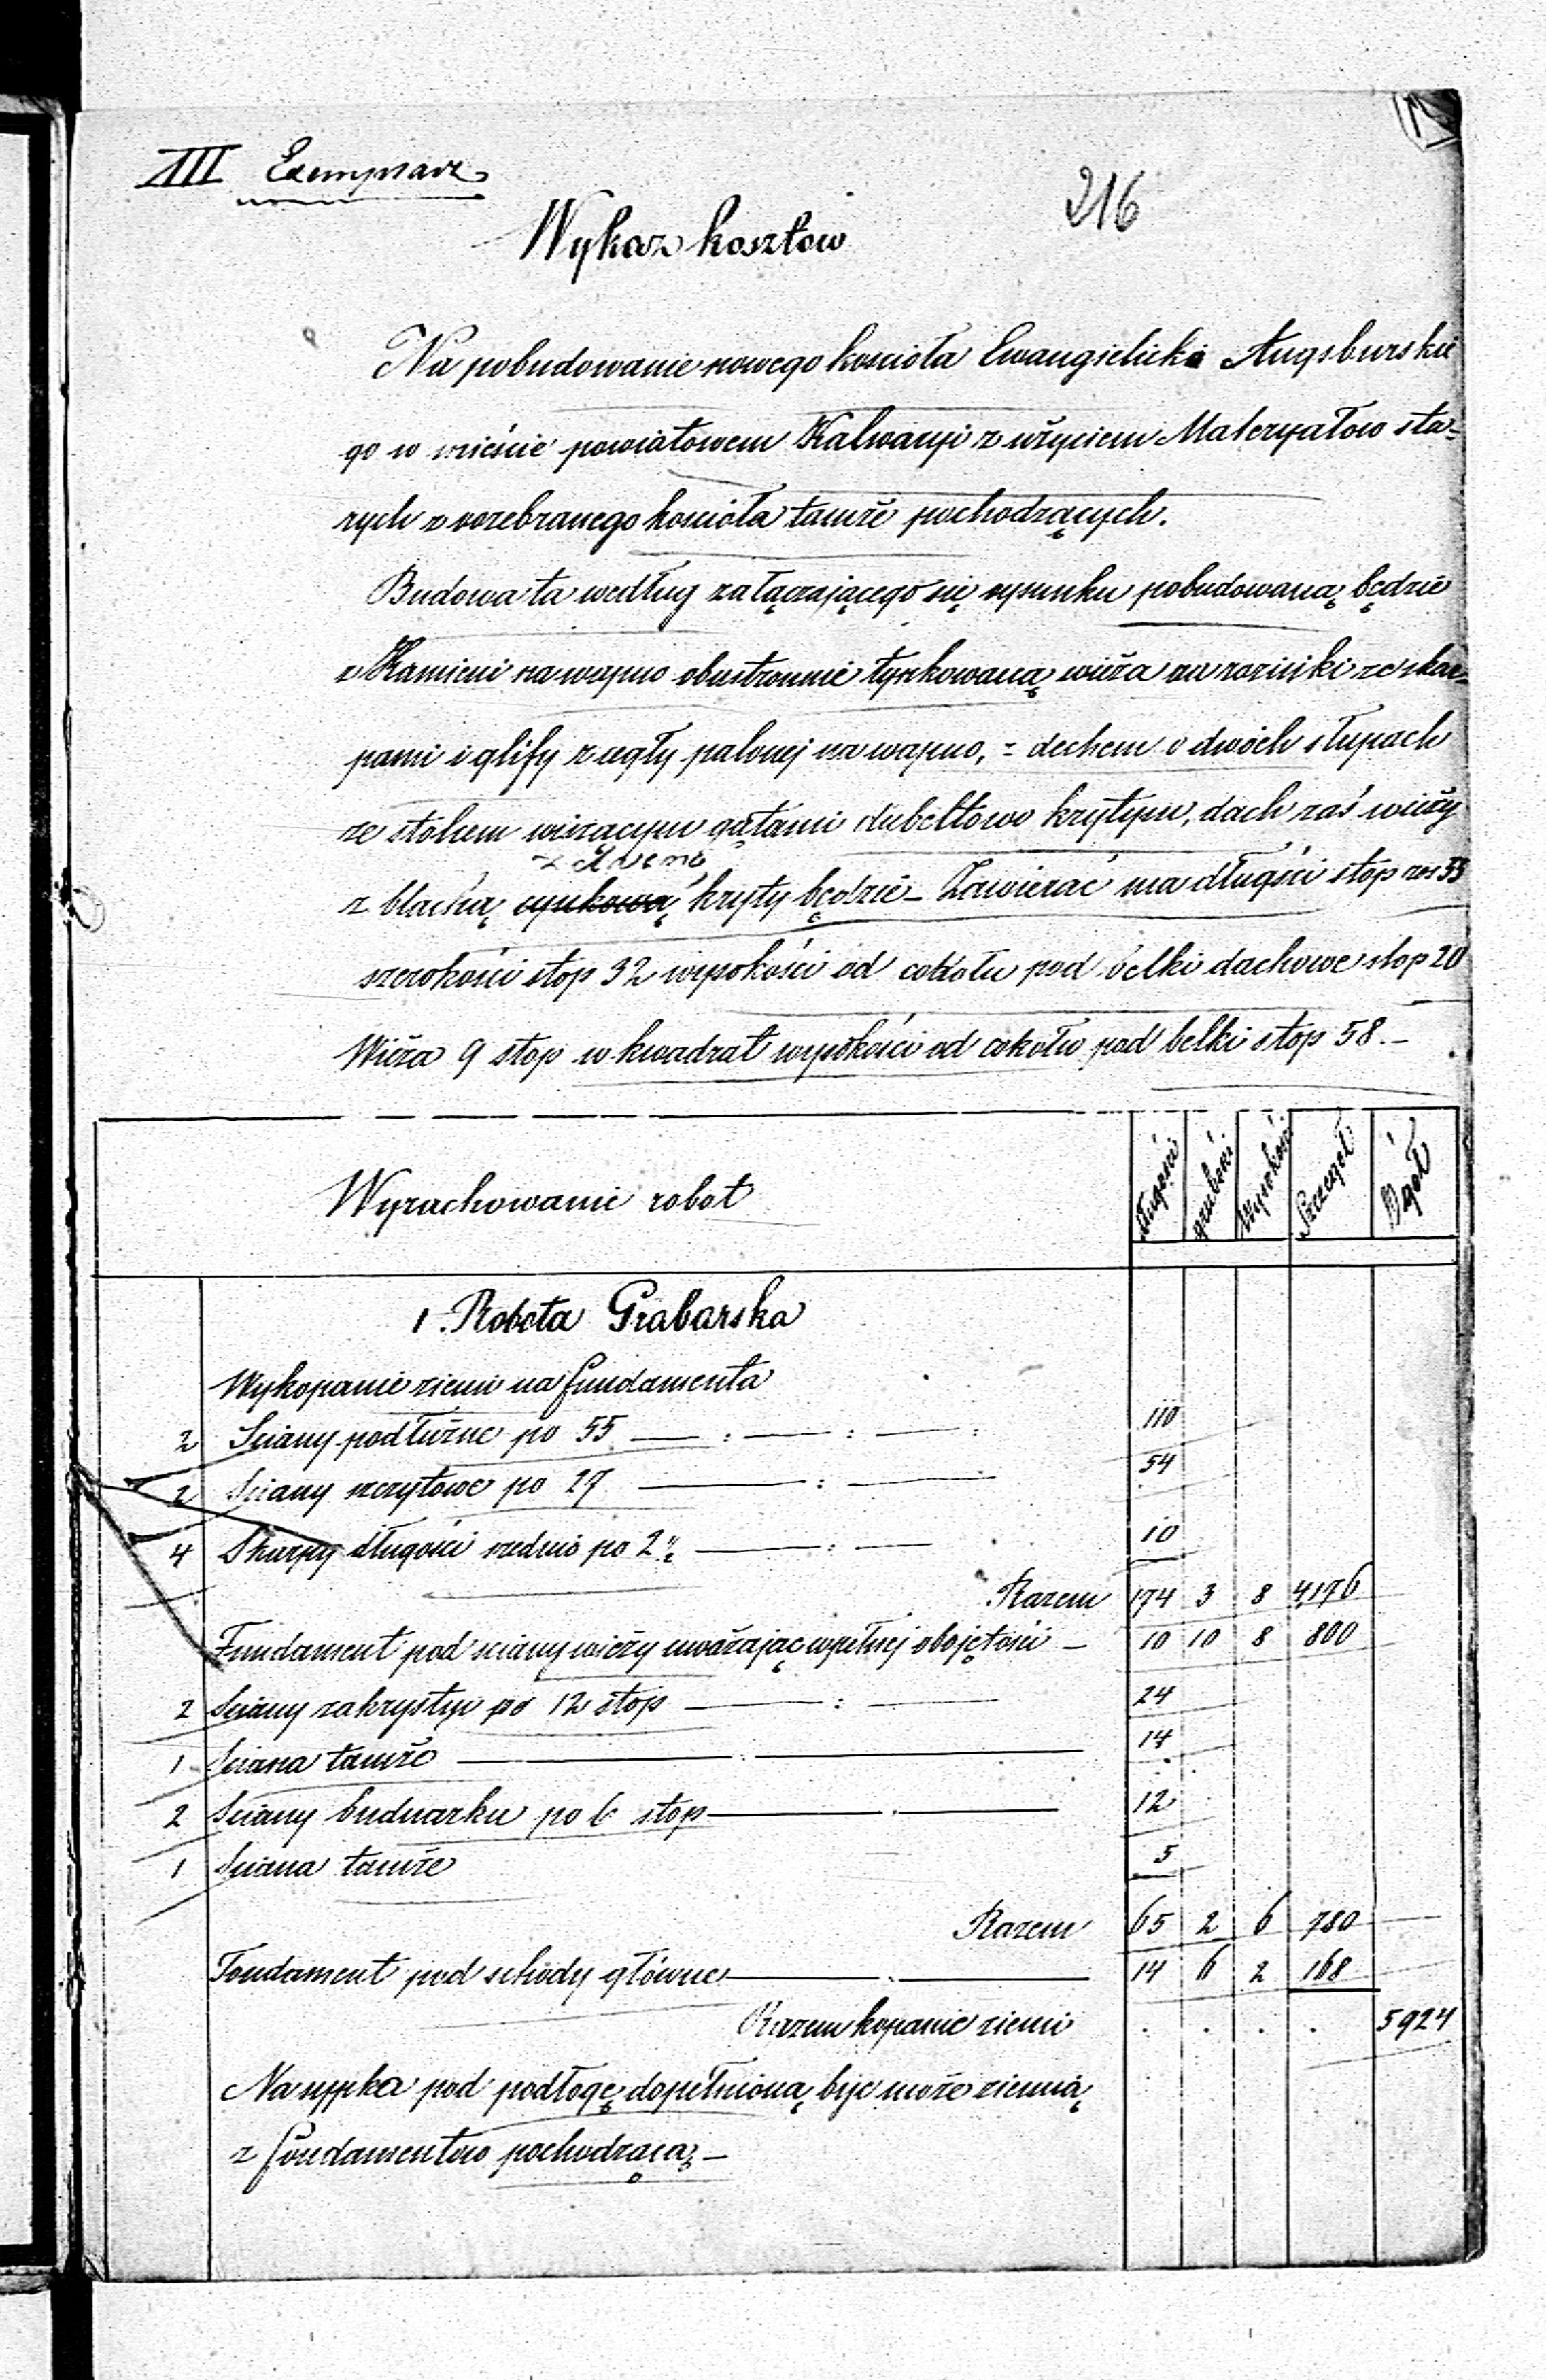 III Exemplarz
216
Wykaz kosztow
Na pobudowanie nowego koscioła Ewangielicko Augsburskie
go w mieście powiatowem Kalwaryi z użyciem Materyałow sta=
rych z rozebranego kościoła tamże pochodzących.
Budowa ta według załączającego się rysunku pobudowaną będzie
z Kamieni na wapno obustronnie tynkowaną wieża na rożniki ze skar=
pami i glify z cegły palonej na wapno, = dachem o dwóch słupach
ze stolcem wiszącym gątami dubeltowo krytym, dach zaś wieży
z blachą cynkową kryty będzie - Zawierać ma długości stop 55
szerokości stop 32 wysokości od cokołu pod belki dachowe stop 20
Wieża 9 stop w kwadrat wysokości od cokołu pod belki stop 58.-
Wyrachowanie robot
długości
grubości
Wysokości
Szczegół
Ogół
1. Robota Grabarska
Wykopanie ziemi na fundamenta
2 Sciany podłużne po 55 110
2 Sciany szczytowe po 27 54
4 Skarpy długości srednio po 2½ 10
Razem 174 3 8 4176
Fundament pod sciany wieży uważając w pełnej objętości - 10 10 8 800
2 Sciany zakrystyi po 12 stop 24
1 Sciana tamże 14
2 Sciany budnarku po 6 stop 12
1 Sciana tamże 5
Razem 65 2 6 780
Fondament pod schody główne 14 6 2 168
Razem kopanie ziemi . . . . 5924
Nasypka pod podłogę dopełnioną byc może ziemią
z fondamentow pochodzącą -